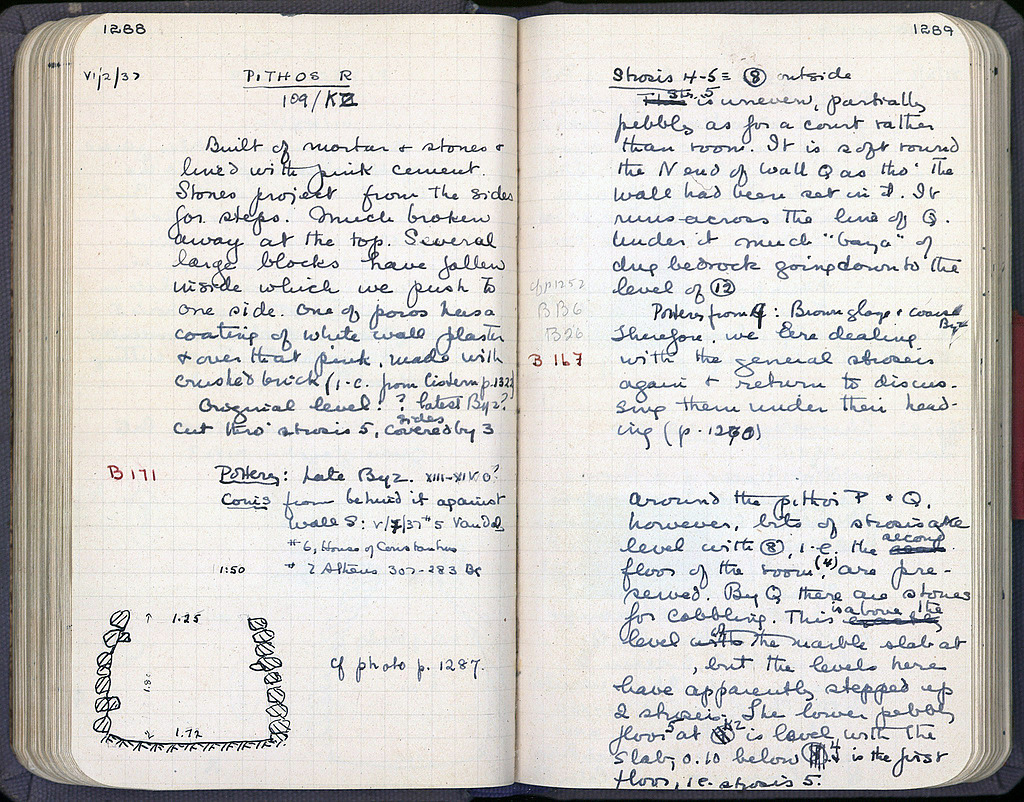 1288
VI/2/37
PITHOS R
109/KZ
Built of mortar + stones +
lined with pink cement.
Stones project from the sides
for steps. Much broken
away at the top. Several
large blocks have fallen
inside which we push to
one side. One of poros has a
coating of white wall plaster
+ over that pink, made with
crushed brick (i.e. from Cistern p.132
Original level: ? latest Byz?
Cut thro' strosis 5, sides covered by 3
B 171
Pottery: Late Byz. XIII-XIV
Coins from behind it against
Wall S: V/7/37 #5 Vandal
#6, House of Constantius
# 7 Athens 307-283 BC
1:50
1.25
1.72
cf photo p. 1287.
1289
Strosis 4-5 = 8 outside
Str. 5 is uneven, partially
pebbly as for a court rather
than room. It is soft round
the N end of wall Q as tho' the
wall had been set in it. It
runs across the line of Q.
Under it much "baya" of
dug bedrock going down to the
level of 12
cf p 1252
BB6
B26
B 167
Pottery from 4: Brown glaze + coarse Byz
Therefore, we are dealing
with the general strosis
again + return to discus-
sing them under their head-
ing (p. 1270)
Around the pithoi P + Q,
however, bits of strosis at the
level with 8, i.e. the second
floor of the room, (4) are pre-
served. By Q there are stones
for cobbling. This is above the
level of the marble slab at
, but the levels here
have apparently stepped up
2 strosis. The lower pebbly
floor 5 at KZ is level with the
slab, 0.10 below 4 is the first
floor, i.e. strosis 5.